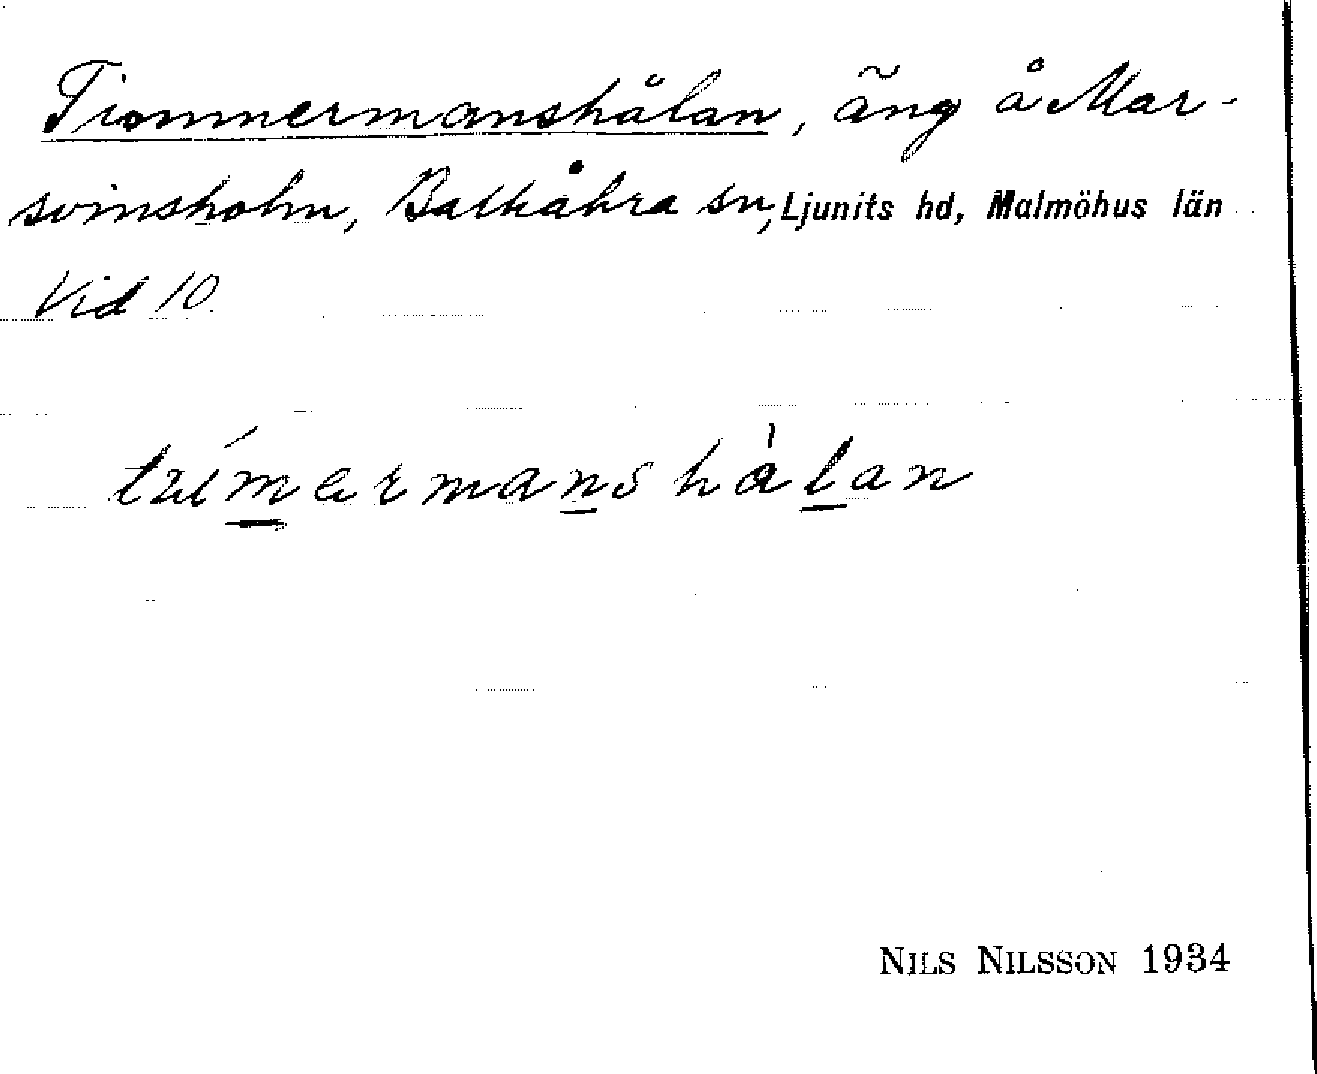 Timmermanshålan, äng å Mar-
svinsholm, Balkåkra sn, Ljunits hd, Malmöhus län
Vid 10.
NILS NILSSON 1934